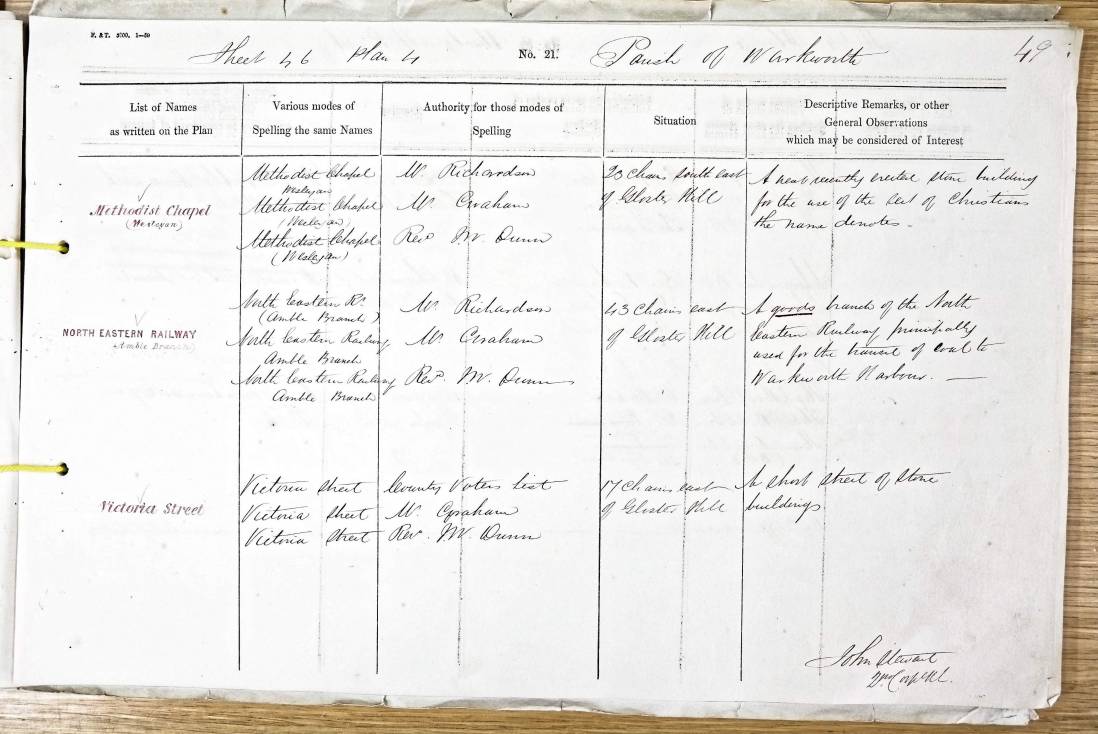 F. & T. 5700. 1—59
Sheet 46 Plan 4 No. 21. Parish of Warkworth 49
List of Names
as written on the Plan
Various modes of
Spelling the same Names
Authority for those modes of
Spelling
Situation
Descriptive Remarks, or other
General Observations
which may be considered of Interest
Methodist Chapel
(Wesleyan)
Methodist Chapel
Wesleyan
Methodist Chapel
(Wesleyan)
Methodist Chapel
(Wesleyan)
Mr. Richardson
Mr. Graham
Revd. W. Dunn
23 Chains South east
of Gloster Hill
A neat recently erected stone building
for the use of the Sect of Christians
the name denotes.
NORTH EASTERN RAILWAY
(Amble Branch)
North Eastern Ry.
(Amble Branch)
North Eastern Railway
Amble Branch
North Eastern Railway
Amble Branch
Mr. Richardson
Mr. Graham
Revd. W. Dunn
43 Chains east
of Gloster Hill
A goods branch of the North
Eastern Railway principally
used for the transit of coal to
Warkworth Harbour. —
Victoria Street
Victoria Street
Victoria Street
Victoria Street
County Voters List
Mr. Graham
Revd. W. Dunn
17 Chains east
of Gloster Hill
A short street of stone
buildings
John Stewart
2nd Corpl RE.